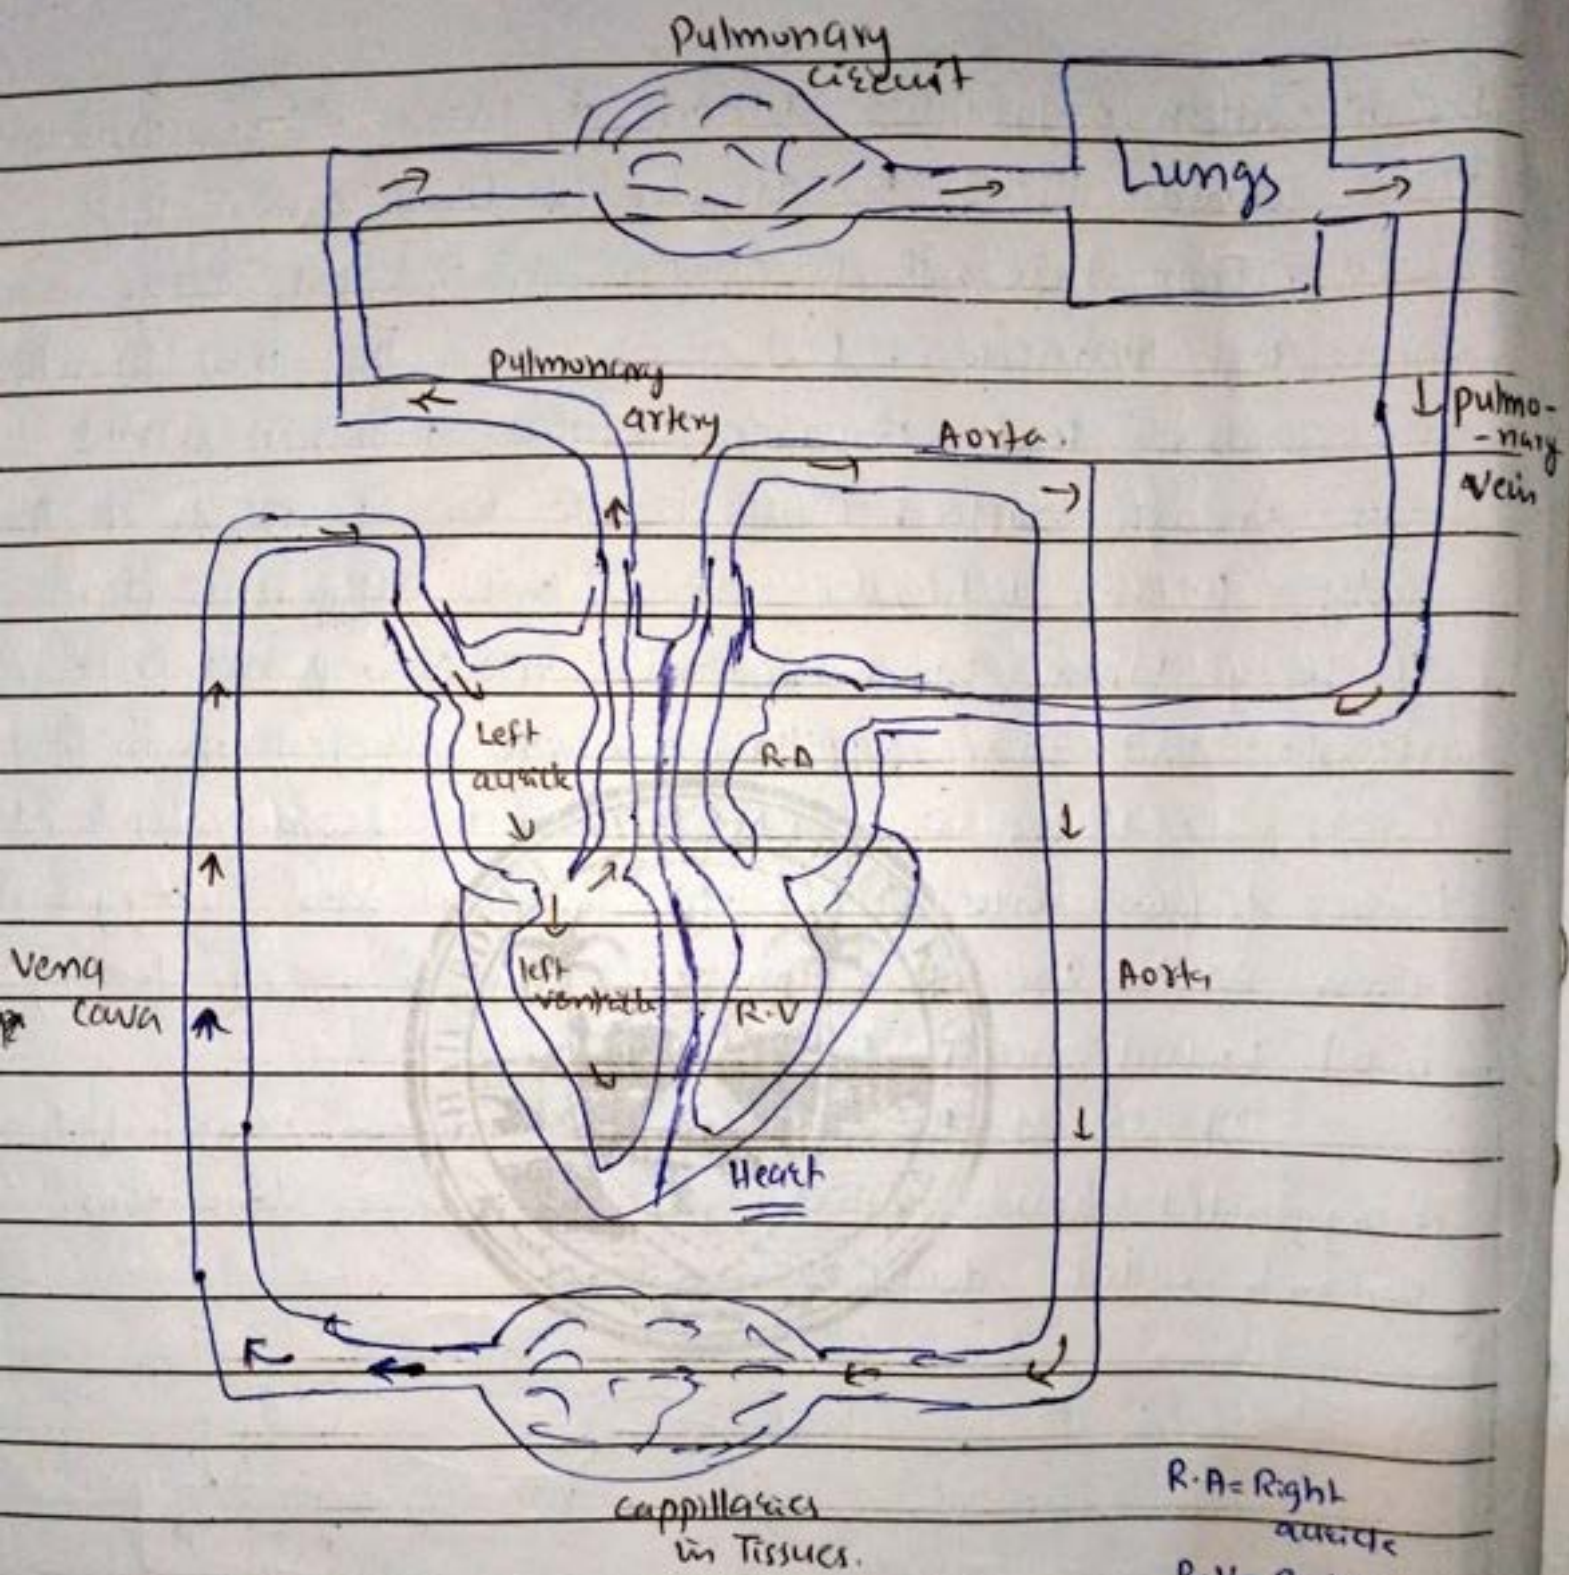 Pulmonary
circuit
Lungs
Pulmonary
artery
Aorta.
pulmo-
-nary
vein
Left
auricle
R.A
left
ventricle
R.V
Vena
cava
Aorta
Heart
cappillaries
in Tissues.
R.A = Right
auricle